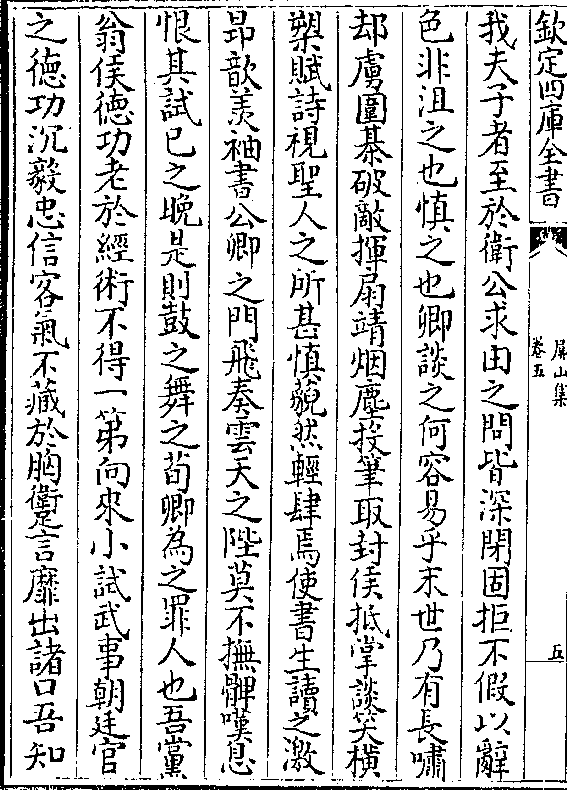 欽定四庫全書
屏山集
卷五
五
我夫子者至於衛公求由之問皆深閉固拒不假以辭
色非沮之也慎之也卿談之何容易乎末世乃有長嘯
却虜圍棊破敵揮扇靖烟塵投筆取封侯抵掌談笑橫
槊賦詩視聖人之所甚慎藐然輕肆焉使書生讀之激
昻歆羡袖書公卿之門飛奏雲天之陛莫不撫髀嘆息
恨其試已之晚是則鼓之舞之荀卿為之罪人也吾黨
翁侯徳功老於經術不得一第向來小試武事朝廷官
之徳功沉毅忠信客氣不藏於胸躗言靡出諸口吾知